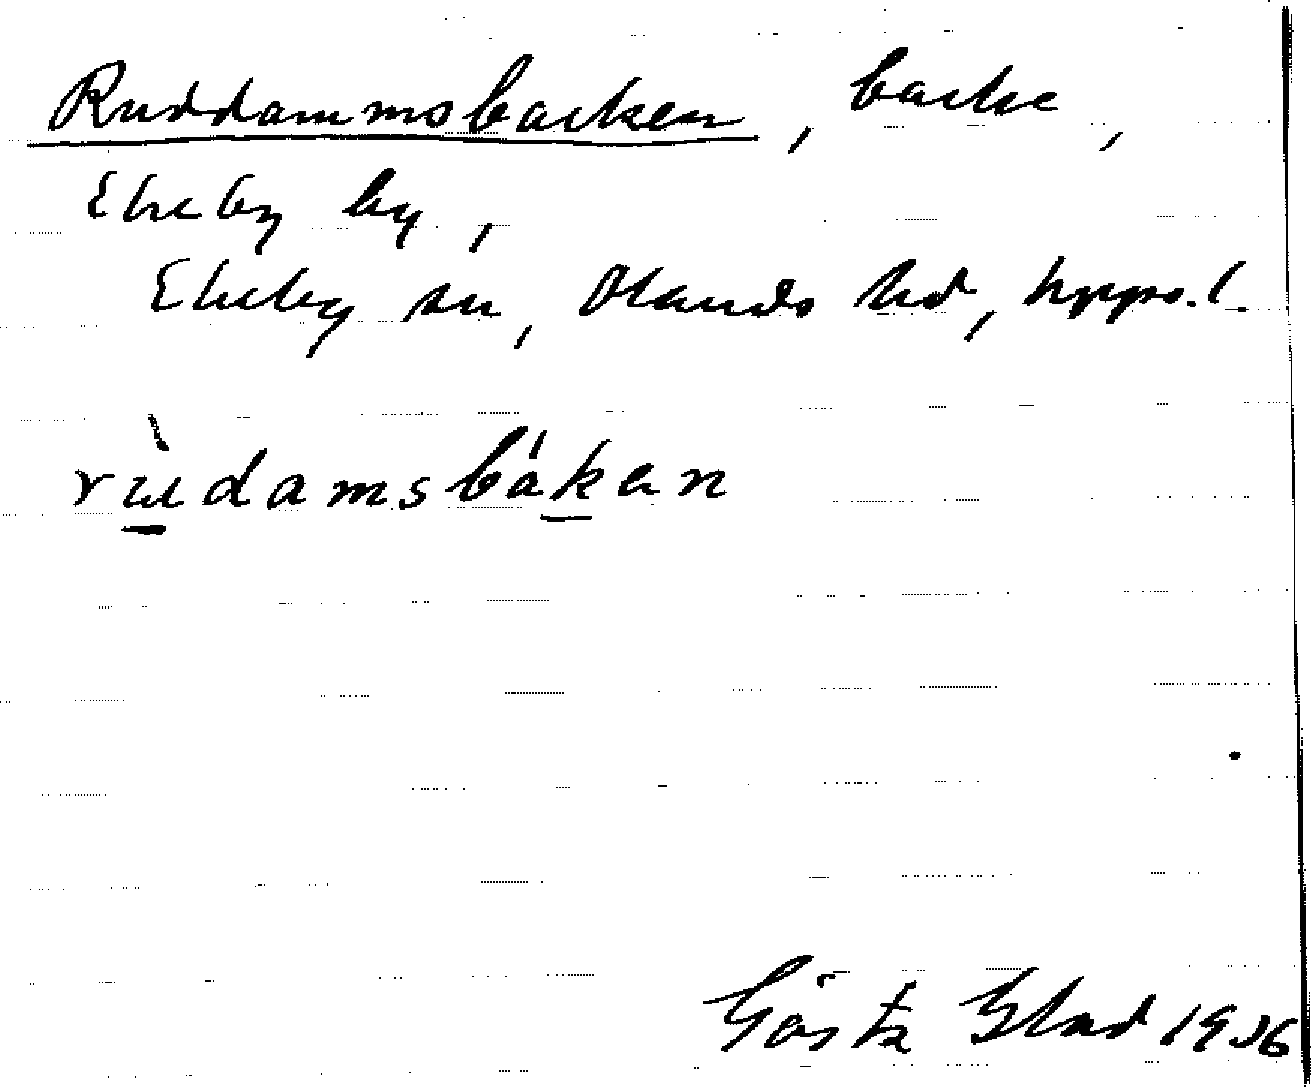 Ruddammsbacken, backe,
Ekeby by,
Ekeby sn, Olands hd, Upps. l.
rùdamsbákan
Gösta Blad 1936